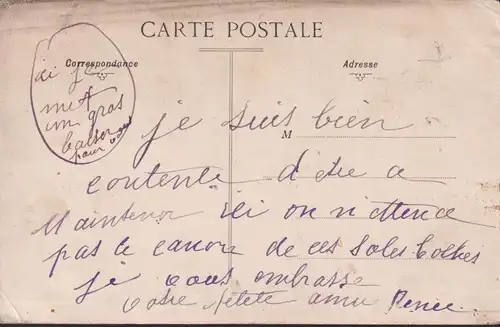 CARTE POSTALE
Correspondance
Adresse
ici je
met
un gros
baiser
pour vous
M
je suis bien
contente d etre a
Maintenon ici on n'ttence
pas le canon de ces sales boches
je vous embrasse
votre petite amie Renée